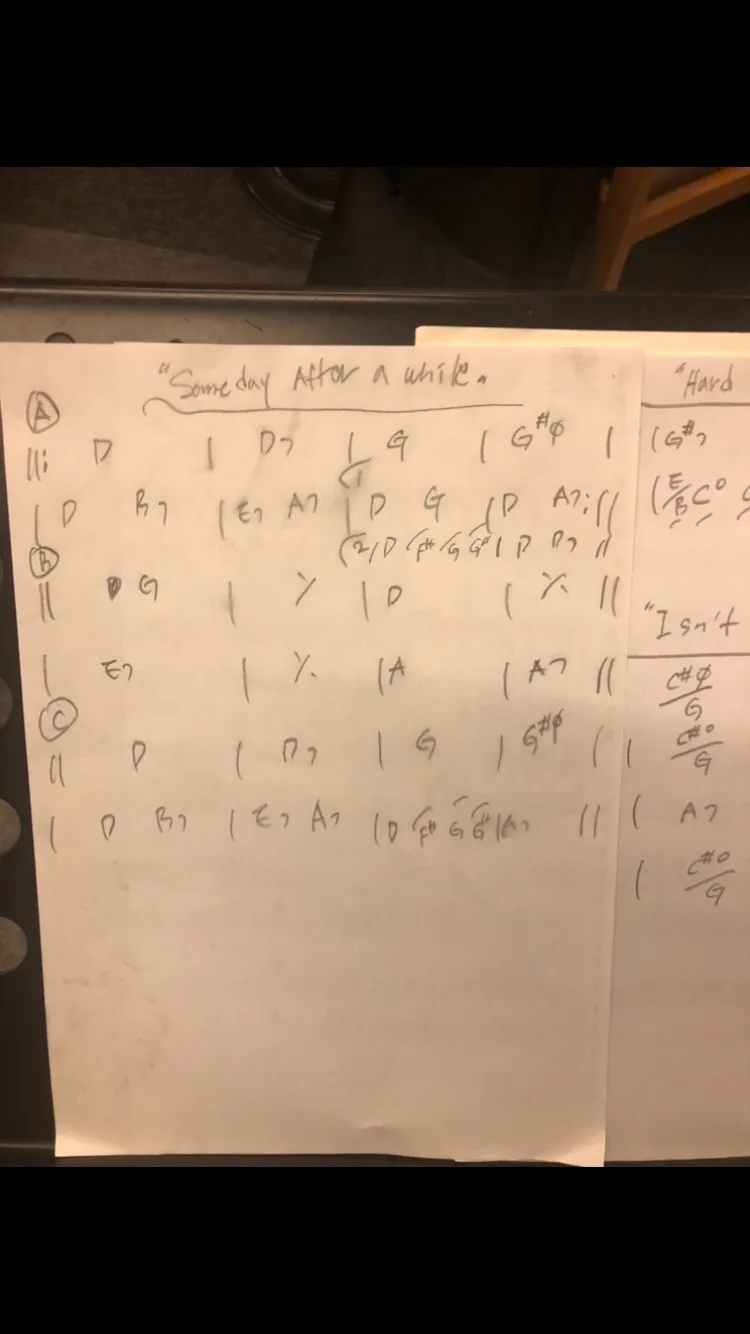 "Someday After a while"
Ⓐ
||: D | D7 | G | G#ø |
| D B7 | E7 A7 | (1 D G | D A7 :||
(2 | D /F# /G /G# | D D7 ||
Ⓑ
|| G | ٪ | D | ٪ ||
| E7 | ٪ | A | A7 ||
Ⓒ
|| D | D7 | G | G#ø |
| D B7 | E7 A7 | D /F# /G /G# | A7 ||
"Hard
| G#7
| E/B C°
"Isn't
C#ø/G
| C#°/G
| A7
| C#°/G